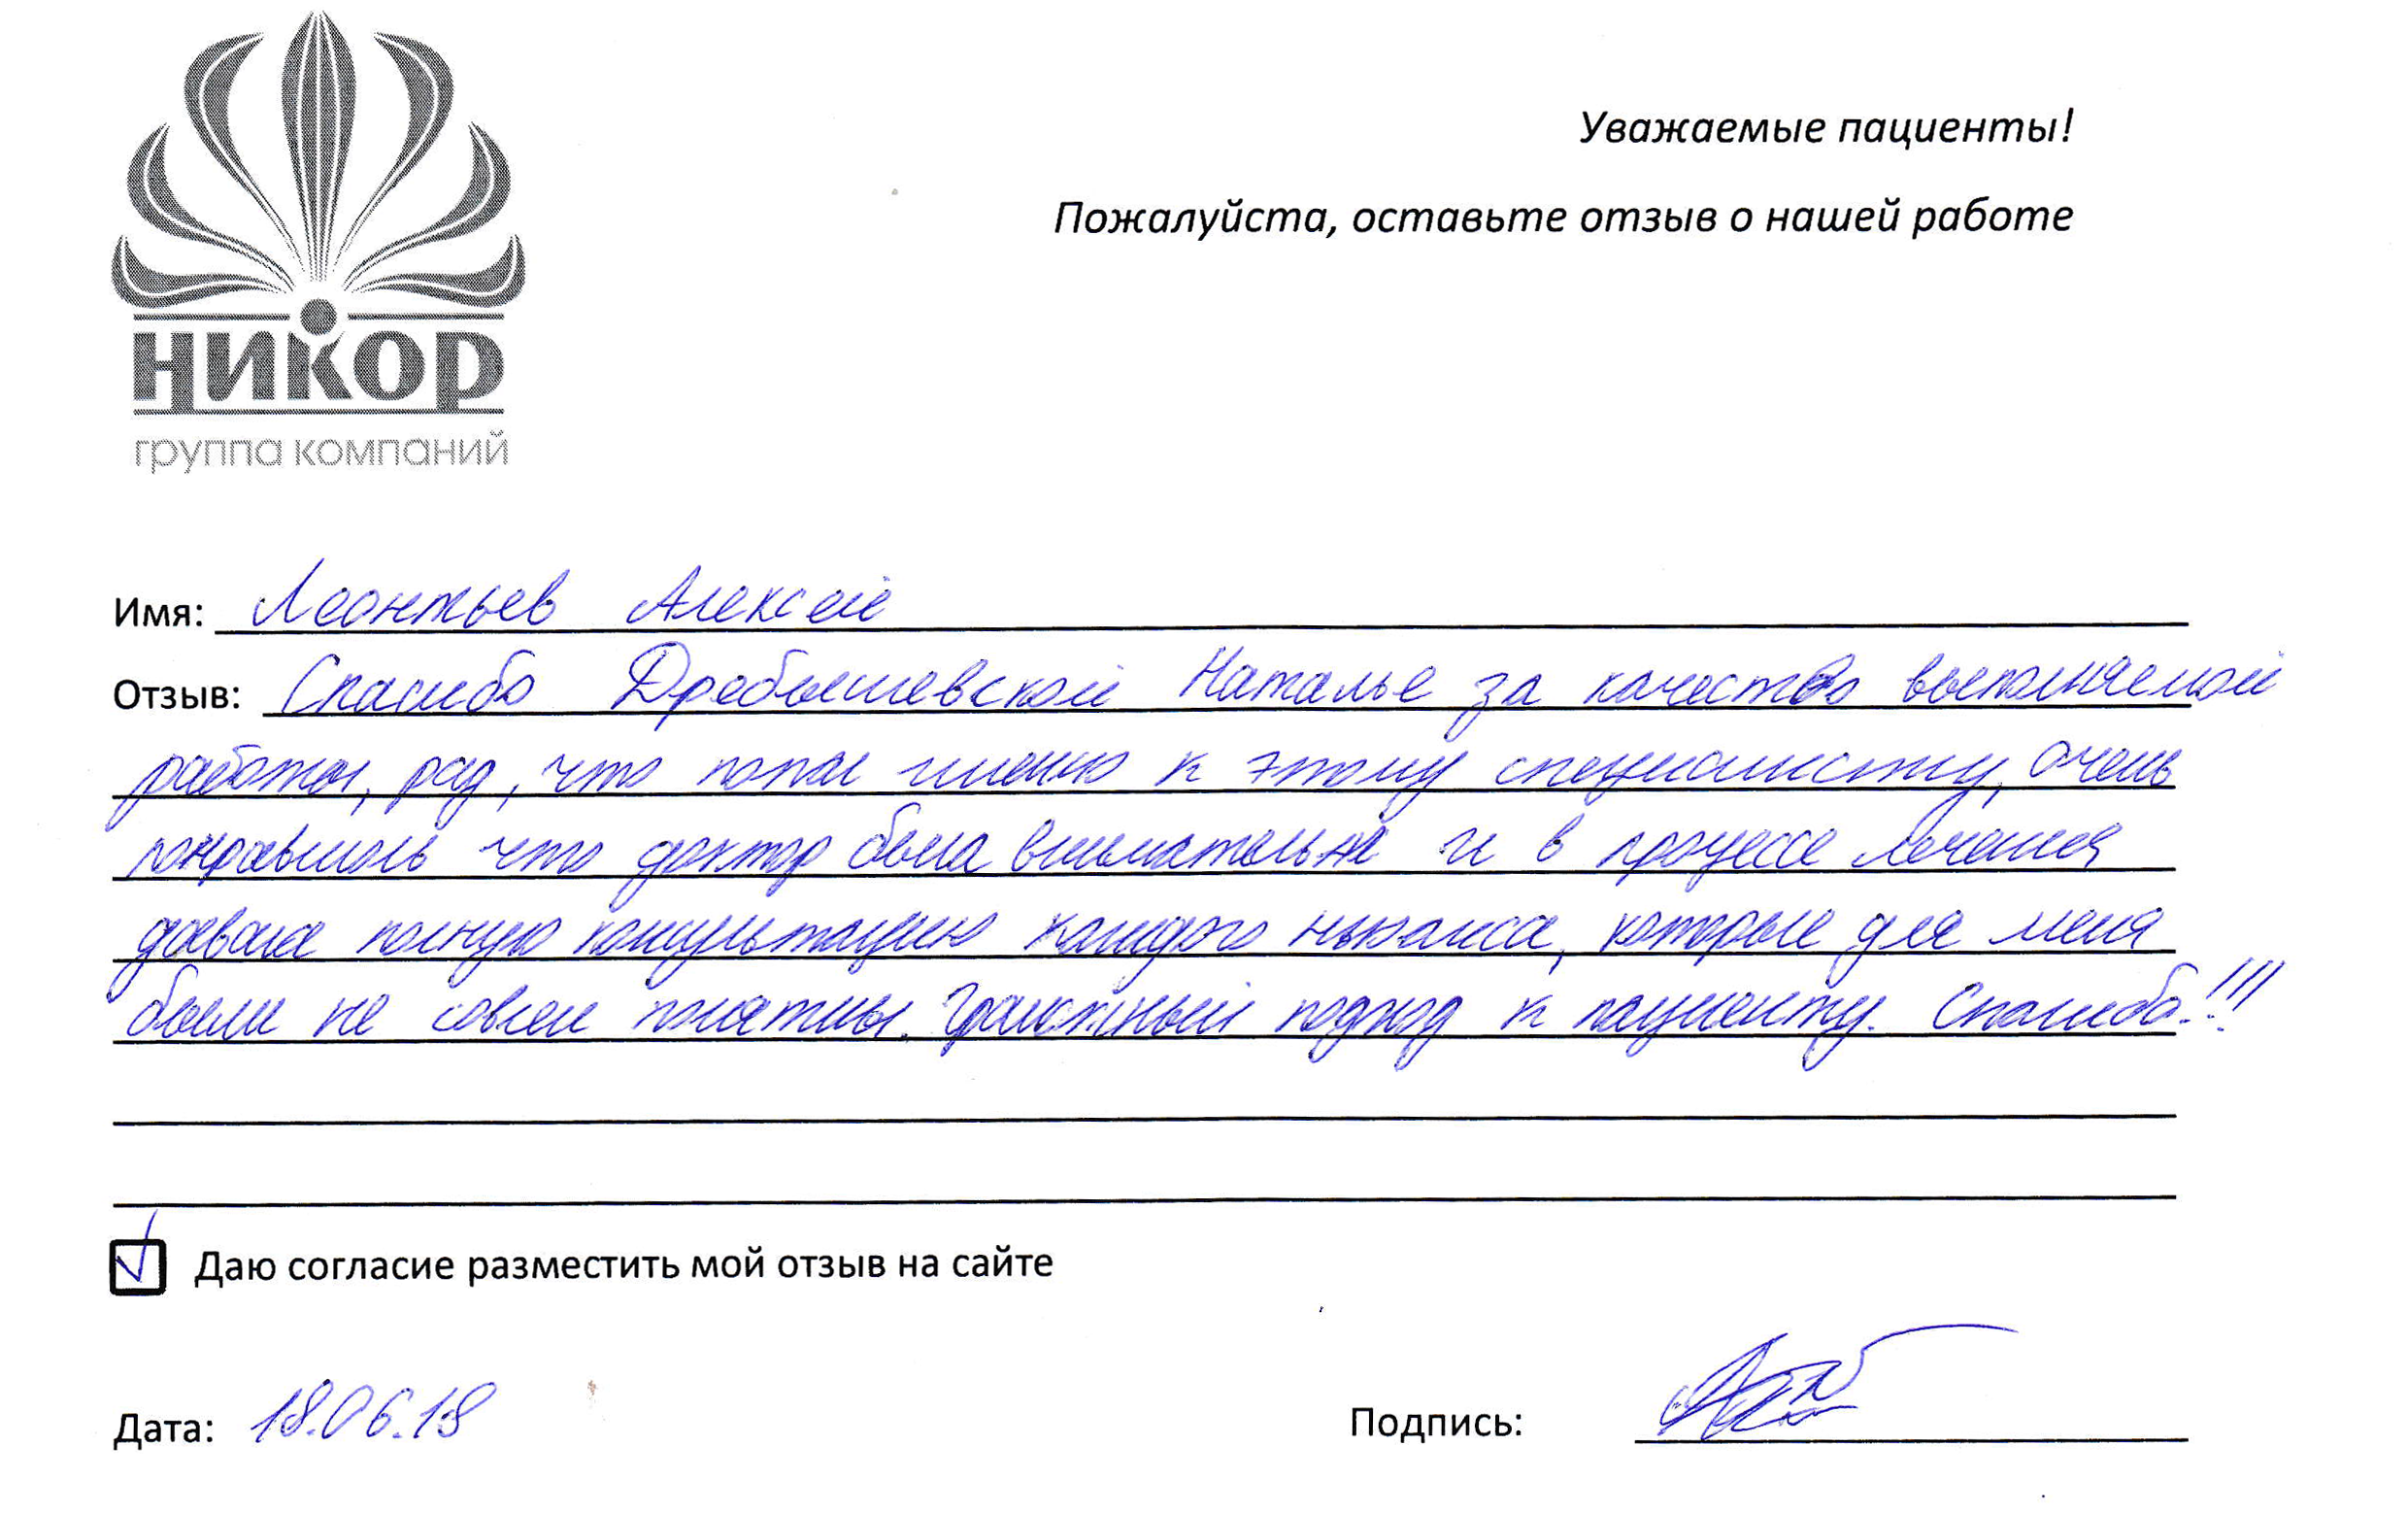 Уважаемые пациенты!
Пожалуйста, оставьте отзыв о нашей работе
НИКОР
группа компаний
Имя: Леонтьев Алексей
Отзыв: Спасибо Дребышевской Наталье за качество выполняемой
работы, рад, что попал именно к этому специалисту, очень
понравилось что доктор была внимательна и в процессе лечения
давала полную консультацию каждого ньюанса, которые для меня
были не совсем понятны. Грамотный подход к пациенту. Спасибо!!!
Даю согласие разместить мой отзыв на сайте
Дата: 18.06.18
Подпись: